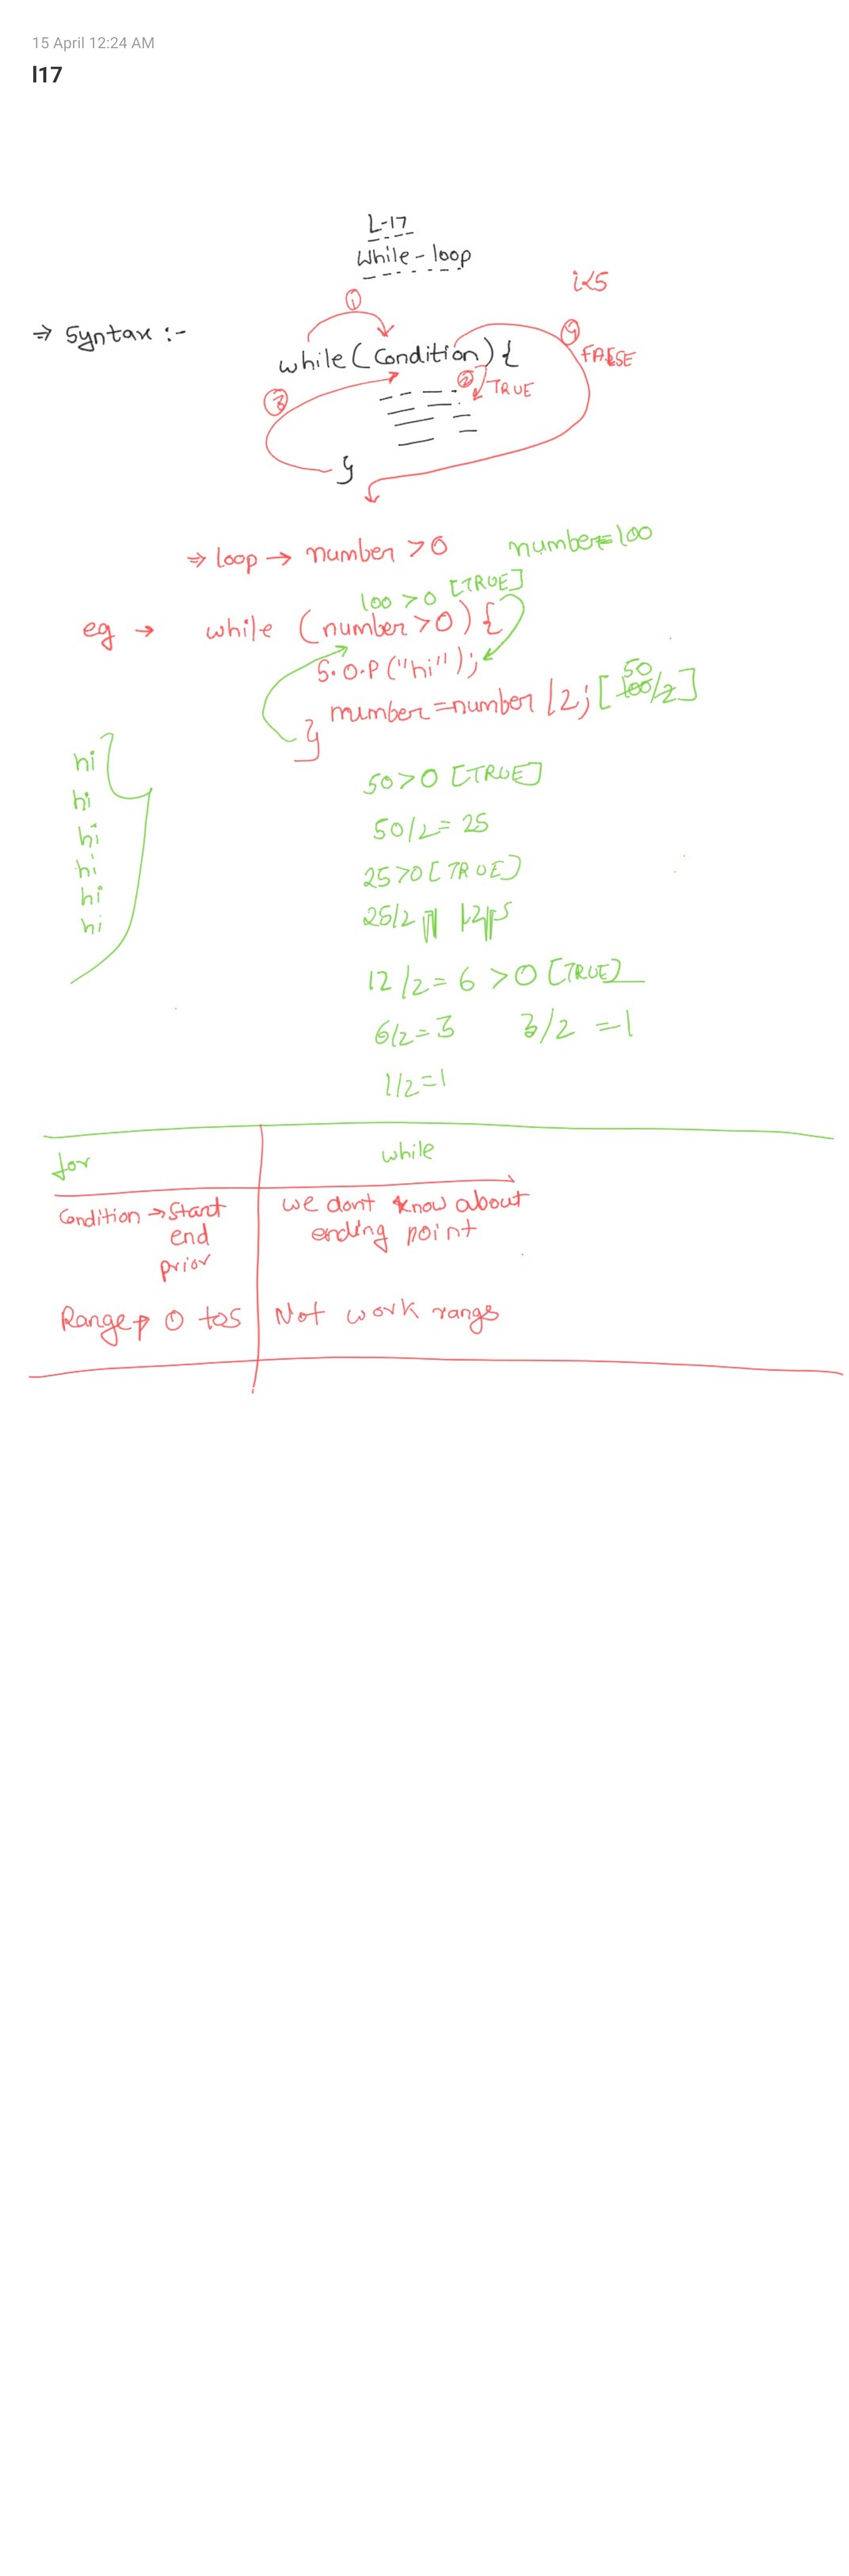 15 April 12:24 AM
l17
L-17
While-loop
i<5
①
⇒ Syntax :-
④
while(Condition){
FALSE
② TRUE
③
}
⇒ loop → number >0 number=100
100 >0 [TRUE]
eg → while (number>0){
S.O.P("hi");
50
number=number/2; [100/2]
}
hi
hi
hi
hi
hi
hi
50>0 [TRUE]
50/2= 25
25>0[TRUE]
25/2
12/2= 6 >0 [TRUE]
6/2=3 3/2 =1
1/2=1
for while
Condition → Start we dont know about
end ending point
prior
Range 0 to5 Not work range